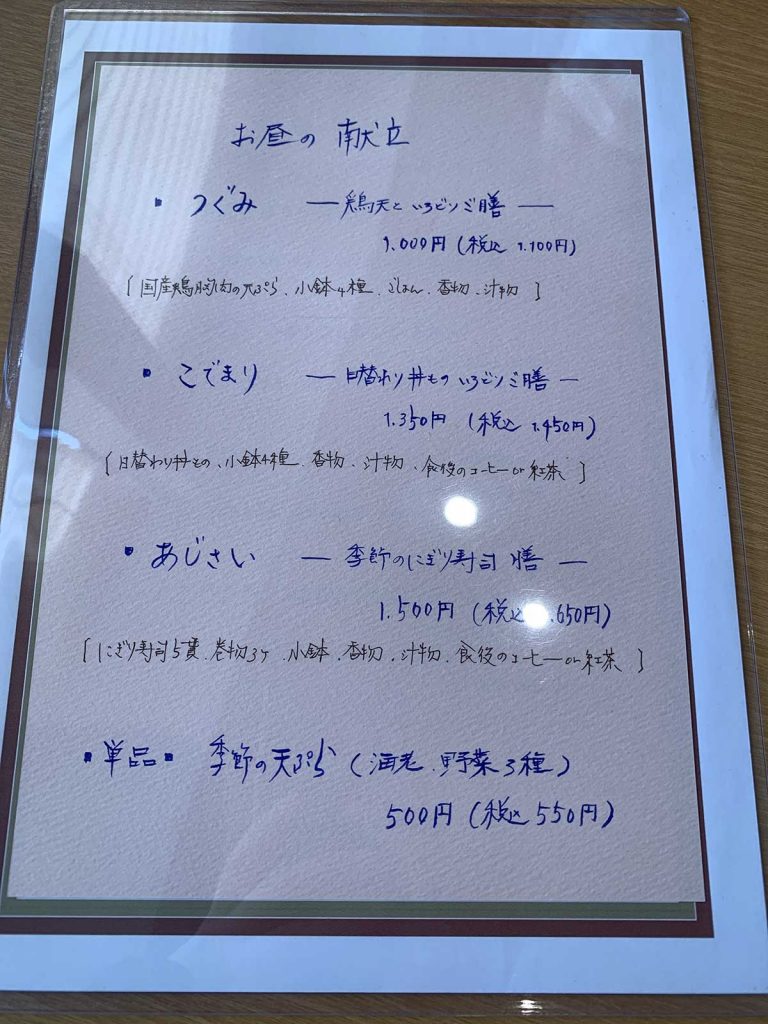 お昼の 献立
・ つぐみ ― 鶏天と いろどりご膳 ―
1.000円 (税込 1.100円)
[ 国産鶏胸肉の天ぷら、小鉢4種、ごはん、香物、汁物 ]
・ こでまり ― 日替わり丼もの いろどりご膳 ―
1.350円 (税込 1.450円)
[ 日替わり丼もの、小鉢4種、香物、汁物、食後のコーヒーor紅茶 ]
・ あじさい ― 季節のにぎり寿司 膳 ―
1.500円 (税込 .650円)
[ にぎり寿司5貫、巻物3ヶ、小鉢、香物、汁物、食後のコーヒーor紅茶 ]
・単品・ 季節の天ぷら (海老、野菜3種)
500円 (税込 550円)